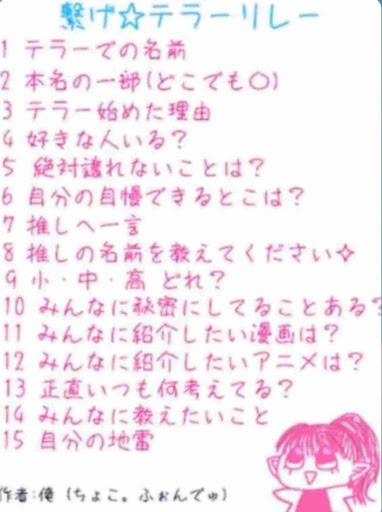 繋げ☆テラーリレー
1 テラーでの名前
2 本名の一部(どこでも〇)
3 テラー始めた理由
4 好きな人いる?
5 絶対譲れないことは?
6 自分の自慢できるとこは?
7 推しへ一言
8 推しの名前を教えてください☆
9 小・中・高 どれ?
10 みんなに秘密にしてることある?
11 みんなに紹介したい漫画は?
12 みんなに紹介したいアニメは?
13 正直いつも何考えてる?
14 みんなに教えたいこと
15 自分の地雷
作者:俺(ちょこ。ふぉんでゅ)